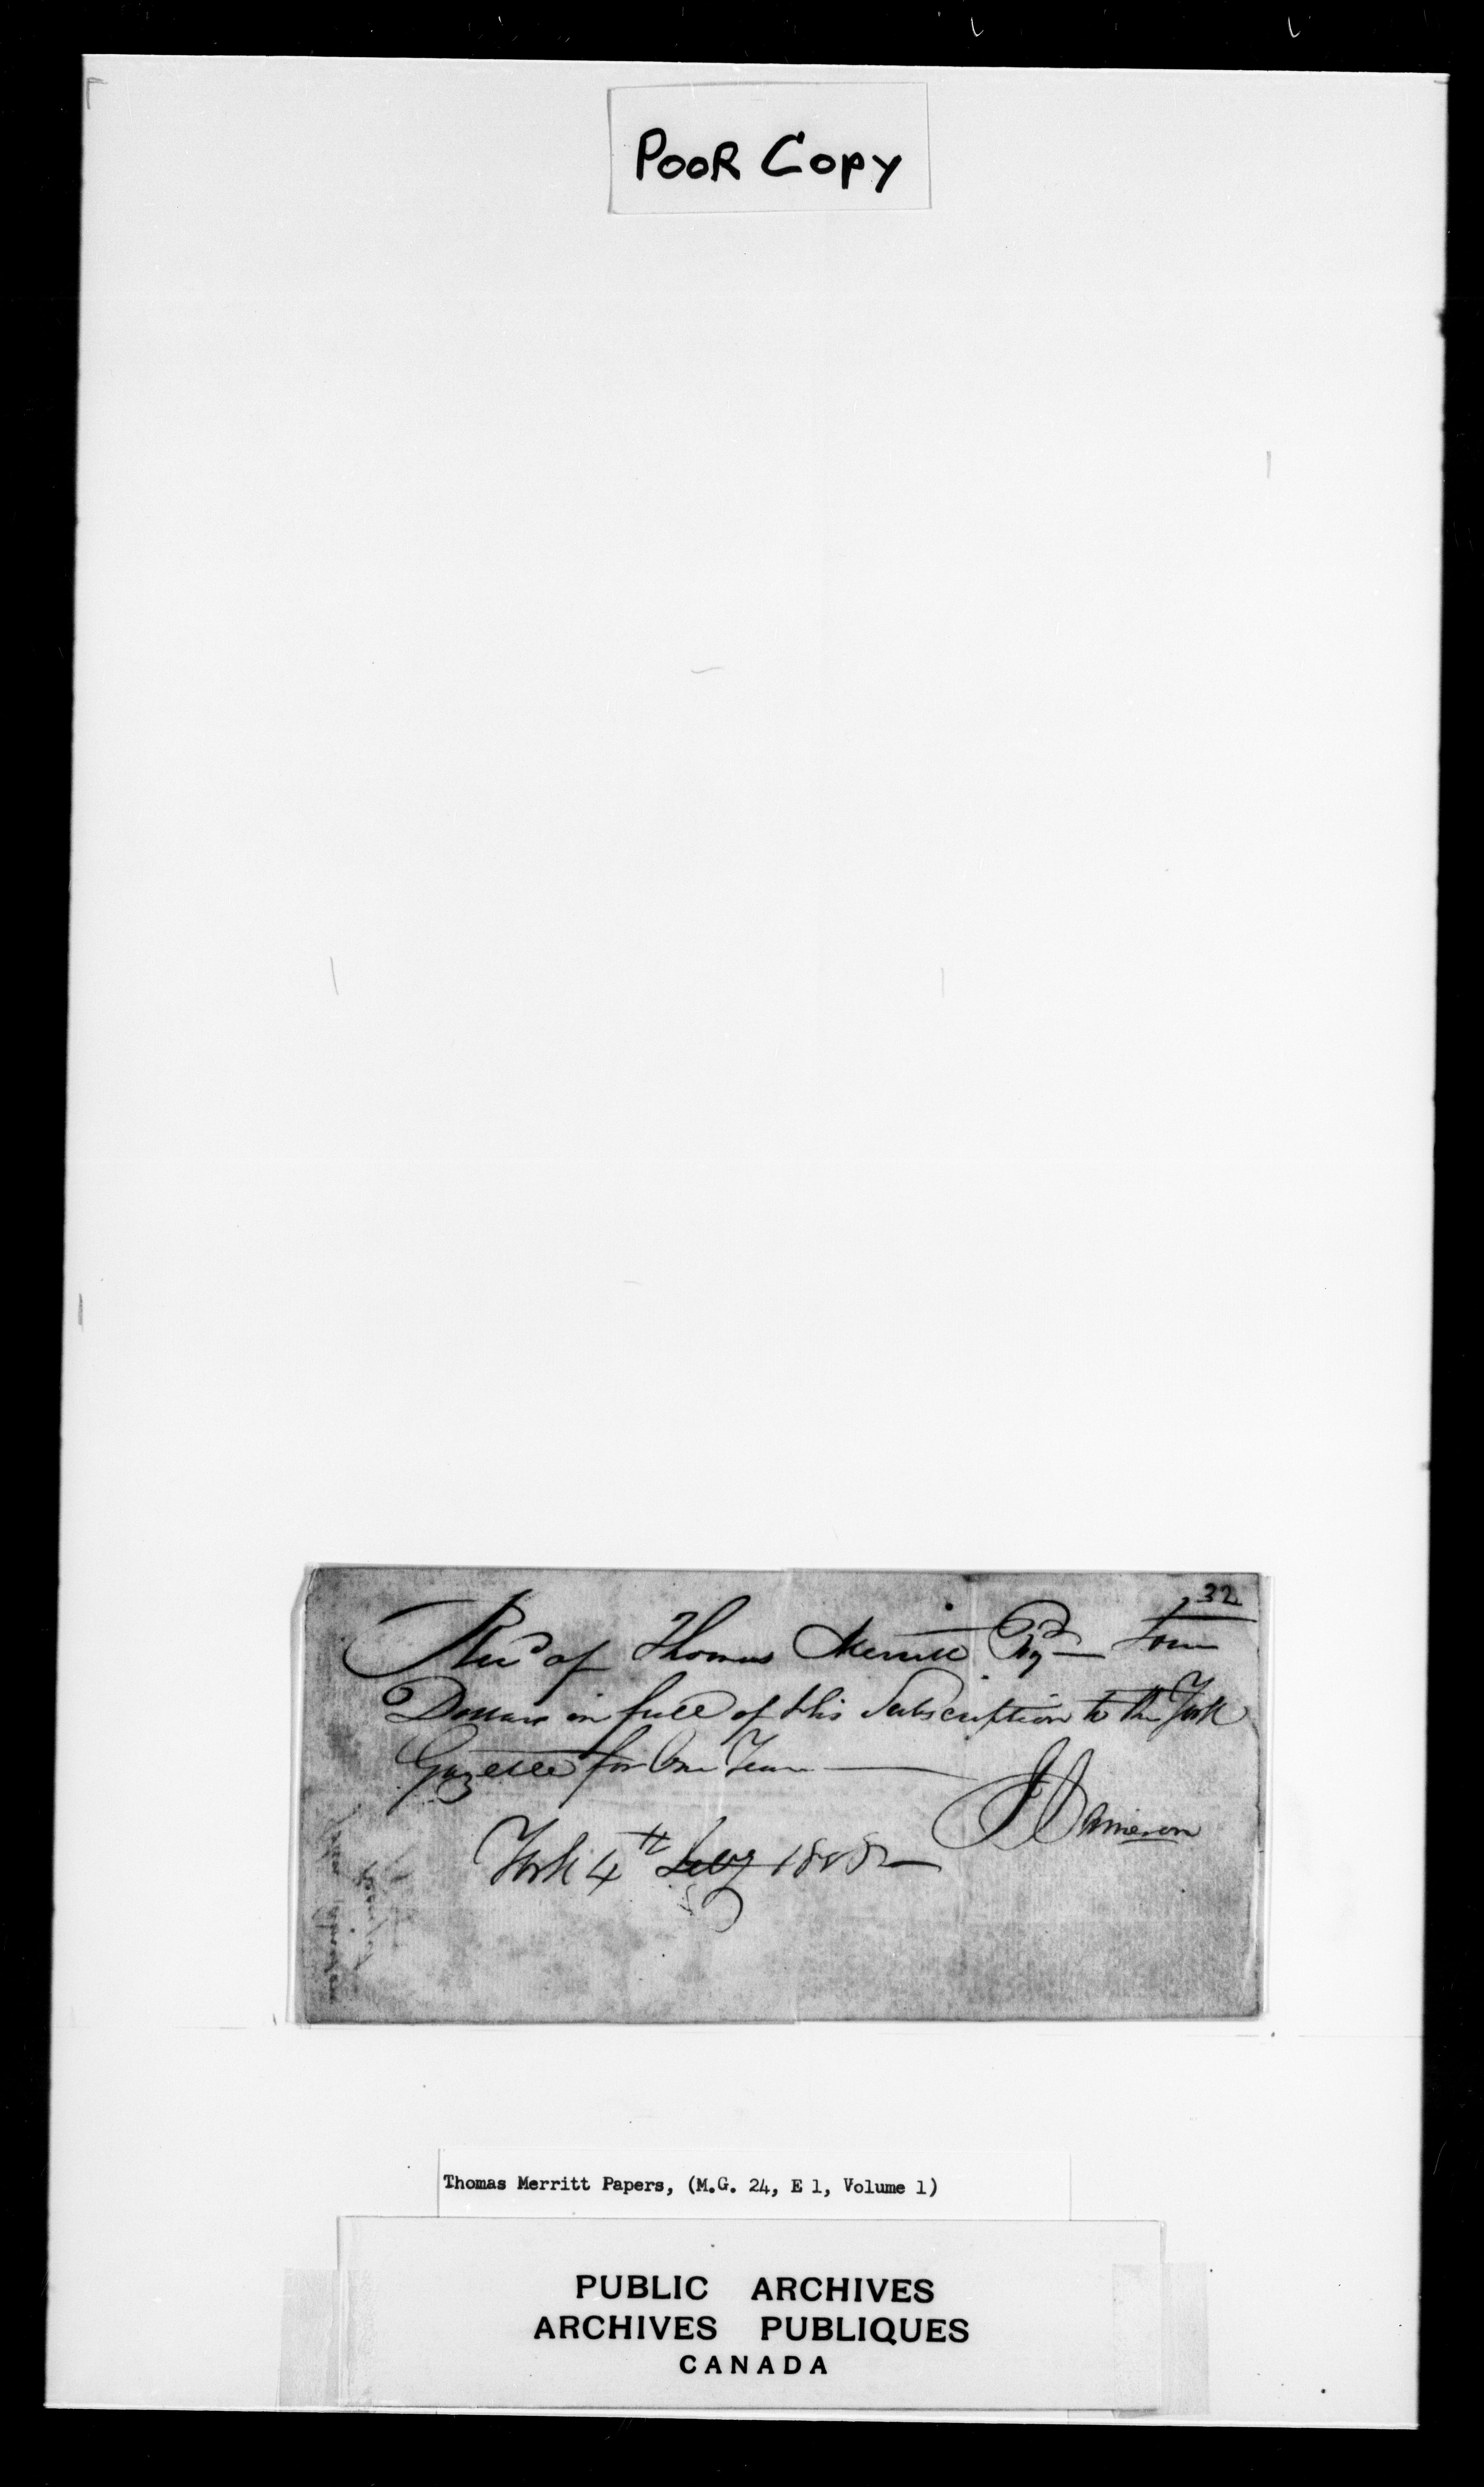 POOR COPY
32
Rec'd of Thomas Merritt Esqr Four
Dollars in full of his Subscription to the York
Gazette for One Year
J Cameron
York 4th 180
Thomas Merritt Papers, (M.G. 24, E 1, Volume 1)
PUBLIC ARCHIVES
ARCHIVES PUBLIQUES
CANADA